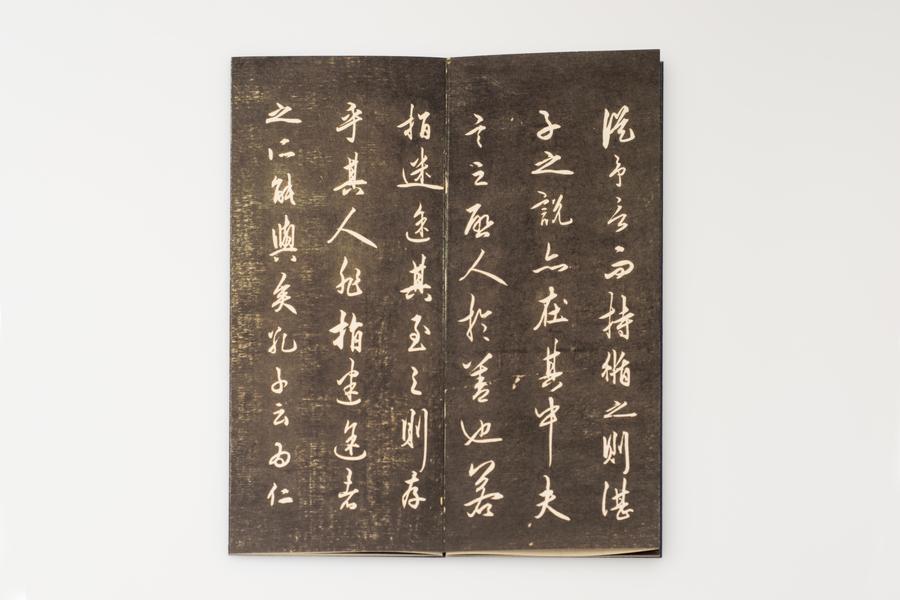 從予言而持循之則湛
子之說亦在其中夫
言之啟人於善也若
指迷途其至之則存
乎其人非指迷途者
之所能與矣孔子云為仁